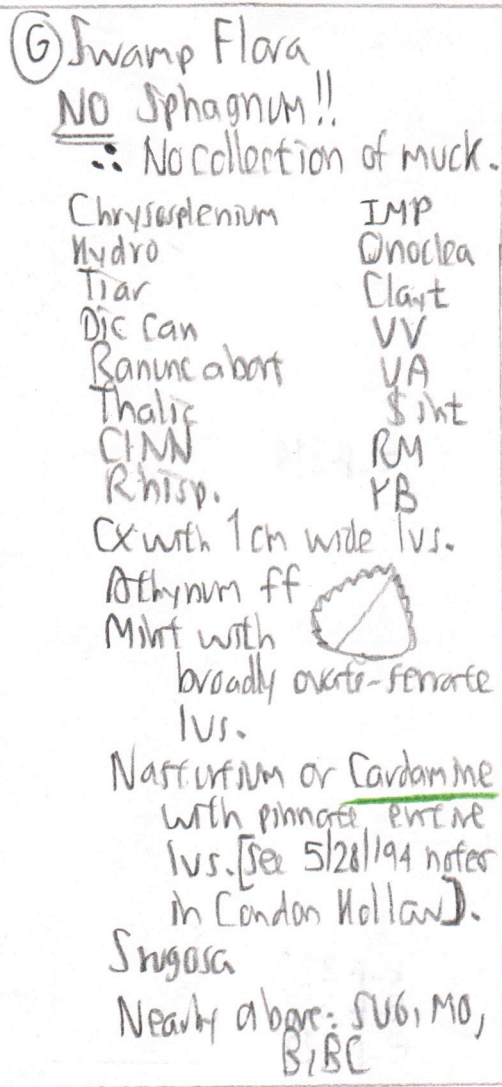 G Swamp Flora
NO Sphagnum!!
∴ No collection of muck.
Chrysosplenium IMP
Hydro Onoclea
Tiar Clayt
Dic can VV
Ranunc abort VA
Thalic S int
CINN RM
Rhisp. YB
CX with 1 cm wide lvs.
Athyrium ff
Mint with
broadly ovate-serrate
lvs.
Nasturtium or Cardamine
with pinnate entire
lvs. [See 5/28/94 notes
in Condon Hollow].
S rugosa
Nearby above: SUG, MO,
B, BC